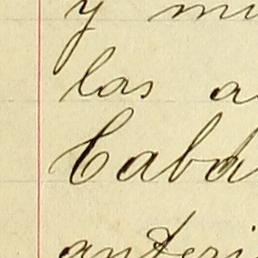 y mi
las a
Caba
anteri